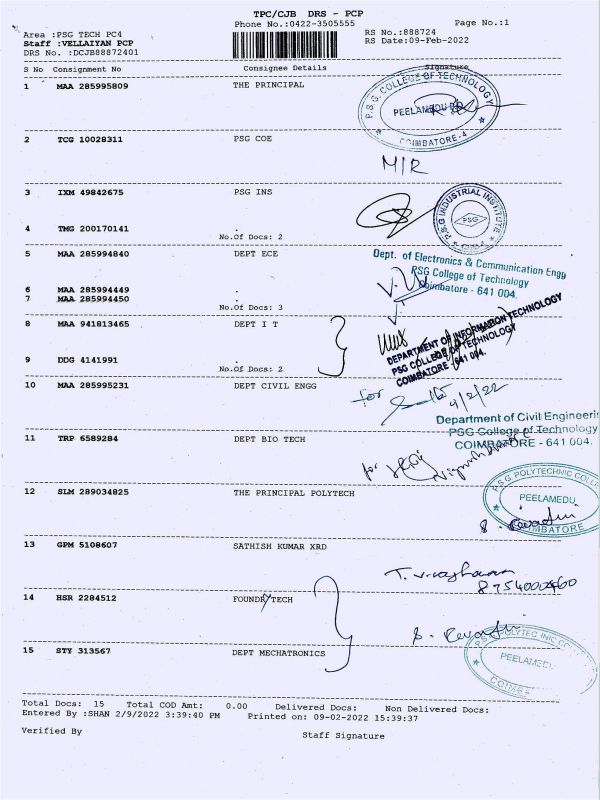 TPC/CJB DRS - PCP
Phone No.:0422-3505555
Page No.:1
Area :PSG TECH PC4
RS No.:888724
Staff :VELLAIYAN PCP
RS Date:09-Feb-2022
DRS No. :DCJB88872401
S No Consignment No Consignee Details Signature
1 MAA 285995809 THE PRINCIPAL
P.S.G. COLLEGE OF TECHNOLOGY
PEELAMEDU
COIMBATORE-4
2 TCG 10028311 PSG COE
M/R
3 IXM 49842675 PSG INS
P.S.G INDUSTRIAL INSTITUTE
PSG
4 TMG 200170141 .
No.Of Docs: 2
5 MAA 285994840 DEPT ECE
Dept. of Electronics & Communication Engg
PSG College of Technology
Coimbatore - 641 004.
6 MAA 285994449 .
7 MAA 285994450 .
No.Of Docs: 3
8 MAA 941813465 DEPT I T
DEPARTMENT OF INFORMATION TECHNOLOGY
PSG COLLEGE OF TECHNOLOGY
COIMBATORE - 641 004.
9 DDG 4141991 .
No.Of Docs: 2
10 MAA 285995231 DEPT CIVIL ENGG
for
9/2/22
Department of Civil Engineerin
PSG College of Technology
COIMBATORE - 641 004.
11 TRP 6589284 DEPT BIO TECH
for
12 SLM 289034825 THE PRINCIPAL POLYTECH
P.S.G. POLYTECHNIC COLLEG
PEELAMEDU
COIMBATORE
S. Revathi
13 GPM 5108607 SATHISH KUMAR XRD
T. Viraghavan
8754000460
14 HSR 2284512 FOUNDRYTECH
S. Revathi
15 STY 313567 DEPT MECHATRONICS
P.S. POLYTECHNIC COLL
PEELAMEDU
COIMB
Total Docs: 15 Total COD Amt: 0.00 Delivered Docs: Non Delivered Docs:
Entered By :SHAN 2/9/2022 3:39:40 PM Printed on: 09-02-2022 15:39:37
Verified By
Staff Signature